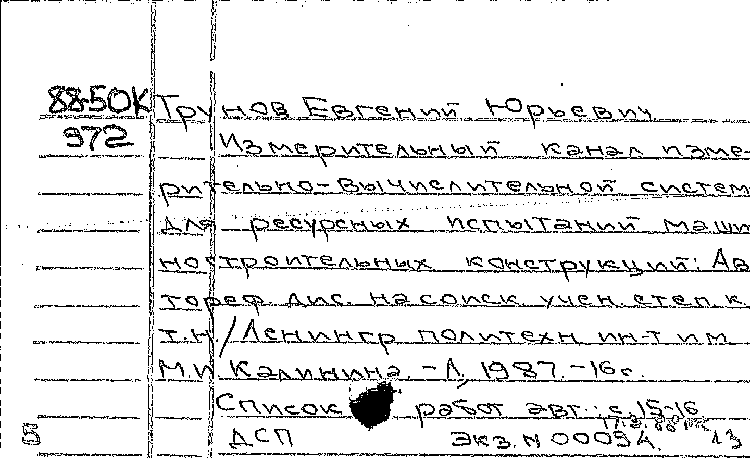 88-50К Трунов Евгений Юрьевич
972 Измерительный канал изме-
рительно-вычислительной систем
для ресурсных испытаний маши
ностроительных конструкций: Ав
тореф. дис. на соиск. учен. степ. к.
т.н. / Ленингр политехн. ин-т им
М.И. Калинина. - Л, 1987. - 16 с.
Список работ авт.: с. 15-16
5 ДСП Экз. N 00054. 13